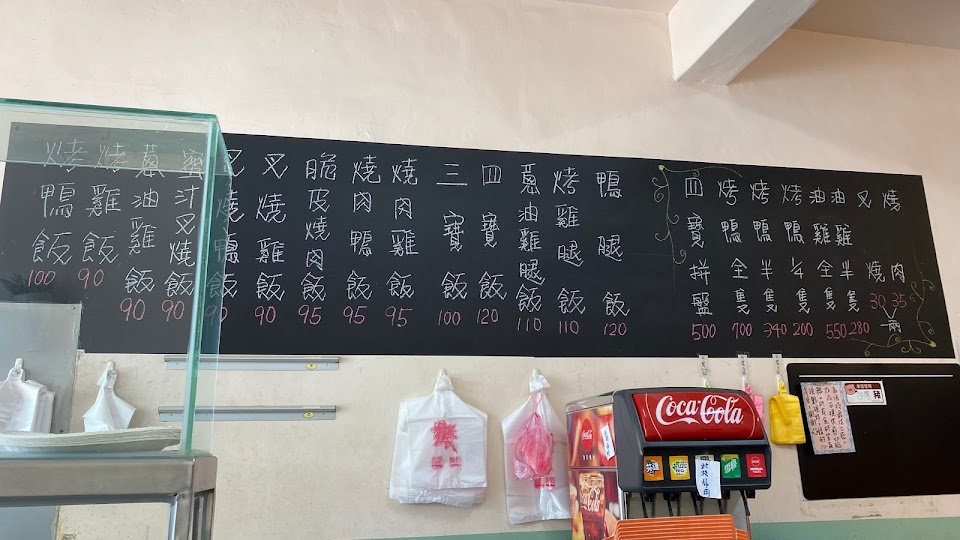 烤鴨飯 100
烤雞飯 90
蔥油雞飯 90
蜜汁叉燒飯 90
叉燒鴨飯 90
叉燒雞飯 90
脆皮燒肉飯 95
燒肉鴨飯 95
燒肉雞飯 95
三寶飯 100
四寶飯 120
蔥油雞腿飯 110
烤雞腿飯 110
鴨腿飯 120
四寶拼盤 500
烤鴨全隻 700
烤鴨半隻 340
烤鴨¼隻 200
油雞全隻 550
油雞半隻 280
叉燒 30
燒肉 35
一兩
Coca-Cola